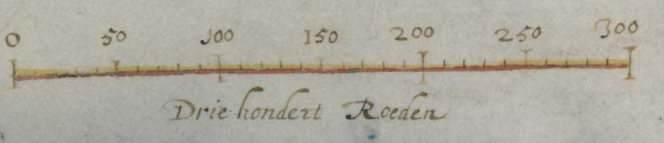 0 50 100 150 200 250 300
Drie hondert Roeden